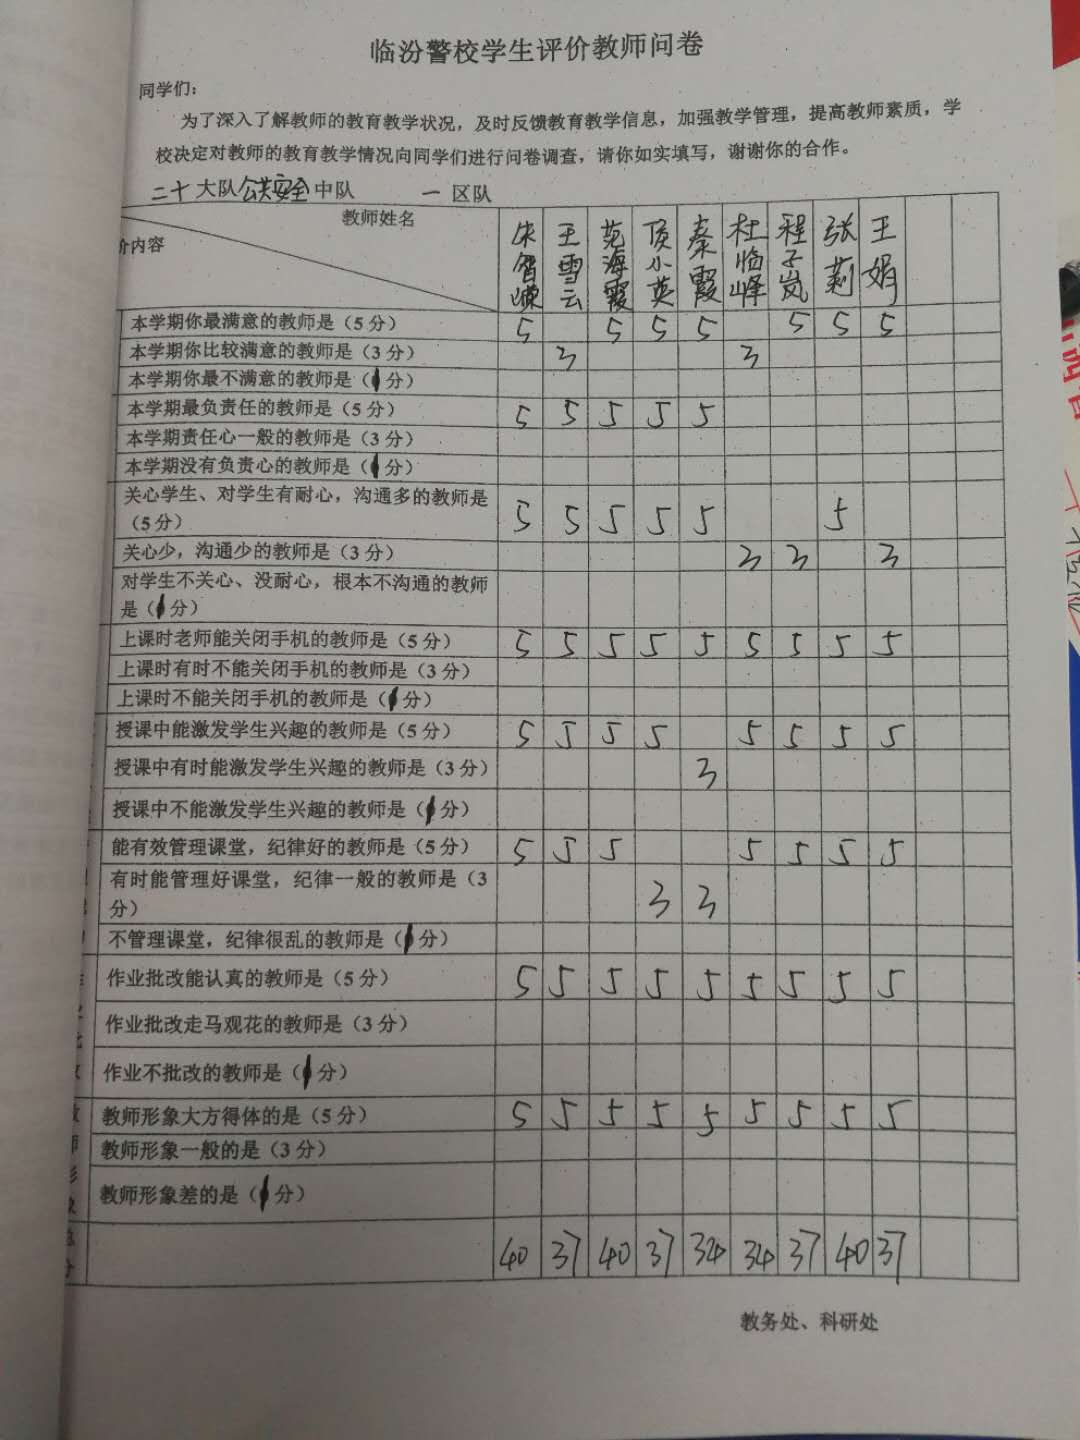 临汾警校学生评价教师问卷
同学们：
为了深入了解教师的教育教学状况，及时反馈教育教学信息，加强教学管理，提高教师素质，学
校决定对教师的教育教学情况向同学们进行问卷调查，请你如实填写，谢谢你的合作。
二十大队公共安全中队 一 区队
教师姓名
价内容
王雪云 范海霞 小英 秦霞 杜临峰 程子岚 张莉 王娟
本学期你最满意的教师是（5分） 5 5 5 5 5 5 5
本学期你比较满意的教师是（3分） 3 3
本学期你最不满意的教师是（1分）
本学期最负责任的教师是（5分） 5 5 5 5 5
本学期责任心一般的教师是（3分）
本学期没有负责心的教师是（1分）
关心学生、对学生有耐心，沟通多的教师是
（5分） 5 5 5 5 5 5
关心少，沟通少的教师是（3分） 3 3 3
对学生不关心、没耐心，根本不沟通的教师
是（1分）
上课时老师能关闭手机的教师是（5分） 5 5 5 5 5 5 5 5 5
上课时有时不能关闭手机的教师是（3分）
上课时不能关闭手机的教师是（1分）
授课中能激发学生兴趣的教师是（5分） 5 5 5 5 5 5 5 5
授课中有时能激发学生兴趣的教师是（3分） 3
授课中不能激发学生兴趣的教师是（1分）
能有效管理课堂，纪律好的教师是（5分） 5 5 5 5 5 5 5
有时能管理好课堂，纪律一般的教师是（3
分） 3 3
不管理课堂，纪律很乱的教师是（1分）
作业批改能认真的教师是（5分） 5 5 5 5 5 5 5 5 5
作业批改走马观花的教师是（3分）
作业不批改的教师是（1分）
教师形象大方得体的是（5分） 5 5 5 5 5 5 5 5 5
教师形象一般的是（3分）
教师形象差的是（1分）
40 37 40 37 34 34 37 40 37
教务处、科研处